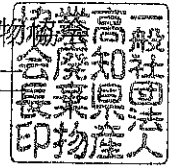 物協会
一般社団法人
高知県産
業廃棄物
協会長印